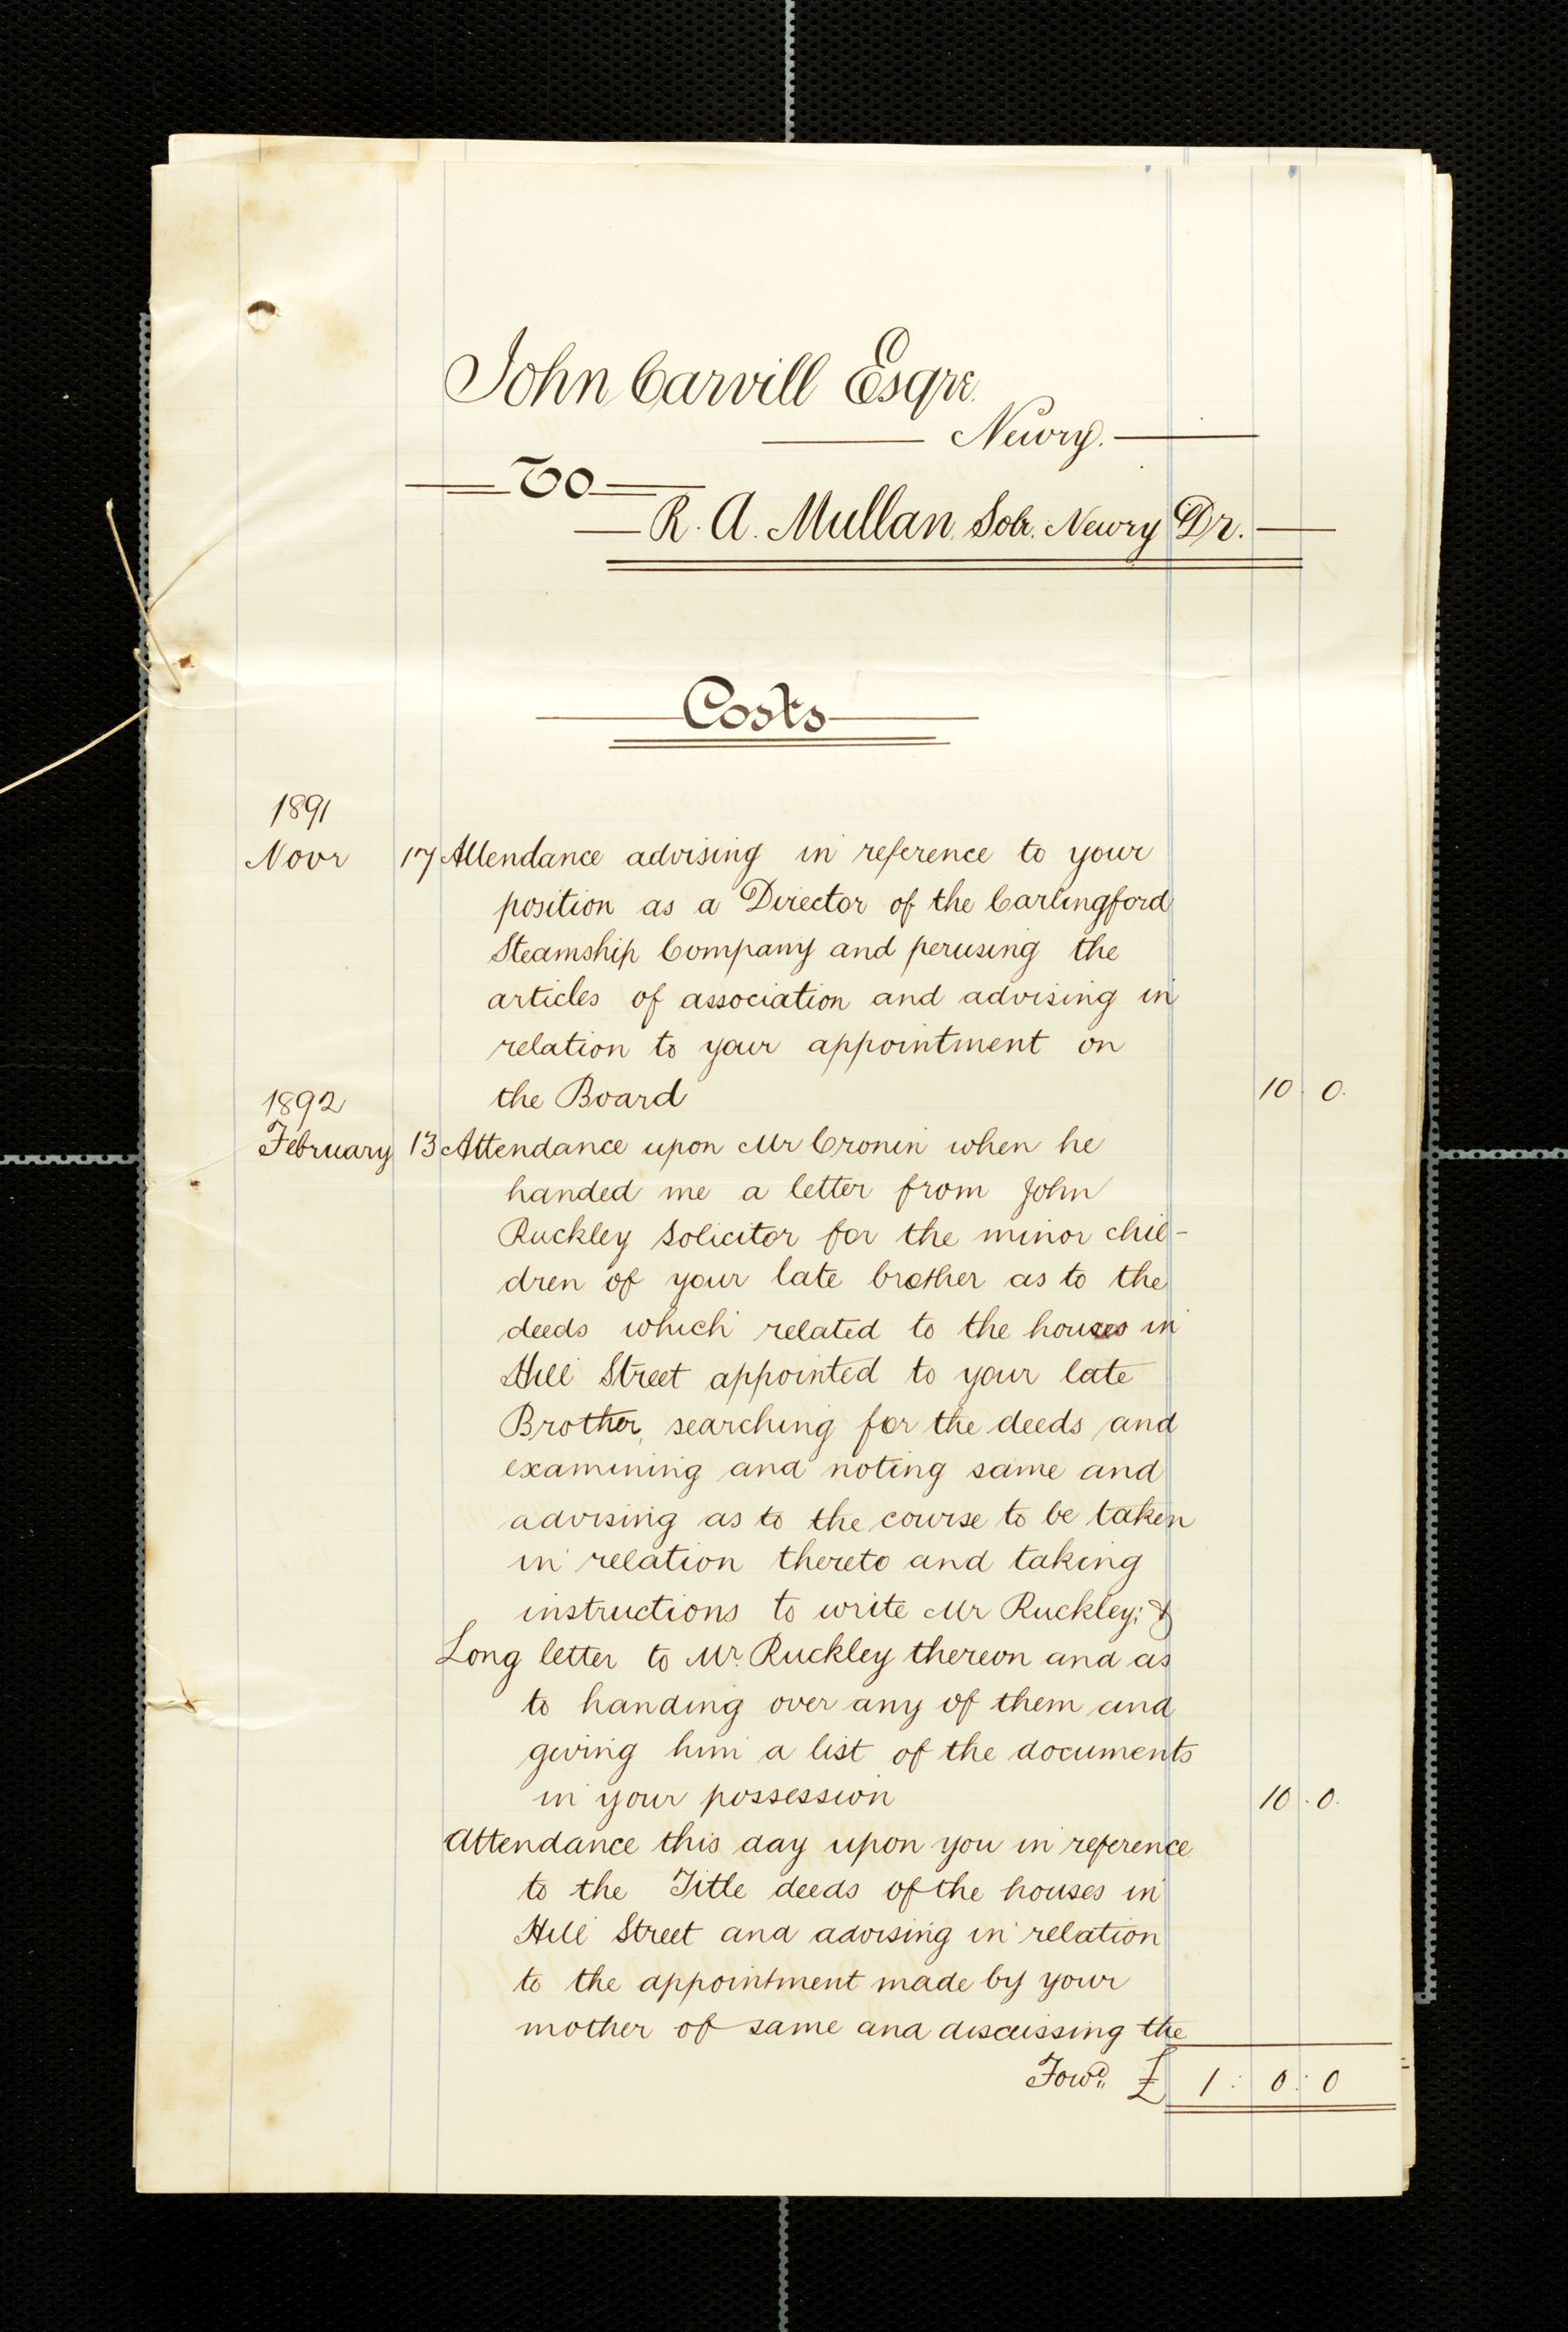 John Carvill Esqre.
Newry.
To
R. A. Mullan. Solr. Newry Dr.
Costs
1891
Novr 17 Attendance advising in reference to your
position as a Director of the Carlingford
Steamship Company and perusing the
articles of association and advising in
relation to your appointment on
the Board 10 . 0.
1892
February 13 Attendance upon Mr Cronin when he
handed me a letter from John
Ruckley Solicitor for the minor chil-
dren of your late brother as to the
deeds which related to the houses in
Hill Street appointed to your late
Brother, searching for the deeds and
examining and noting same and
advising as to the course to be taken
in relation thereto and taking
instructions to write Mr Ruckley; &
Long letter to Mr. Ruckley thereon and as
to handing over any of them and
giving him a list of the documents
in your possession 10 . 0.
Attendance this day upon you in reference
to the Title deeds of the houses in
Hill Street and advising in relation
to the appointment made by your
mother of same and discussing the
Forwd. £ 1 : 0 : 0